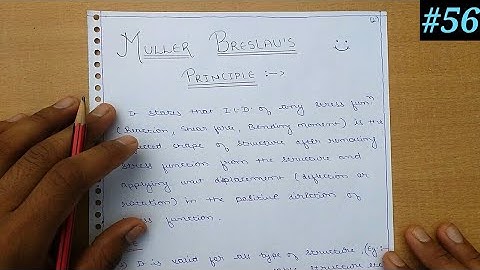 #56
MULLER BRESLAU'S
PRINCIPLE :->
It states that I.L.D. of any stress funⁿ
(Reaction, Shear force, Bending moment) is the
shape of structure after removing
stress function from the structure and
applying unit displacement (deflection or
rotation) in the positive direction of
function.
It is valid for all type of structure, (Eg:-